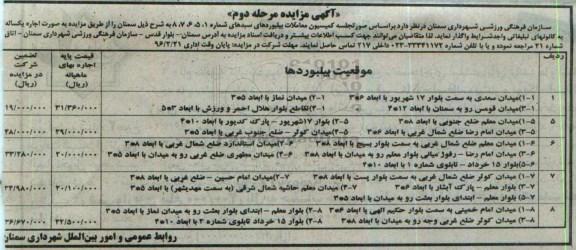 «آگهی مزایده مرحله دوم»
سازمان فرهنگی ورزشی شهرداری سمنان در نظر دارد بر اساس صورتجلسه کمیسیون معاملات بیلبوردهای سبدهای شماره ۱، ۵، ۶، ۷، ۸ به شرح ذیل سمنان را از طریق مزایده به صورت اجاره یکساله
به کانونهای تبلیغاتی واجد شرایط واگذار نماید. لذا متقاضیان می‌توانند جهت کسب اطلاعات بیشتر و دریافت اسناد مزایده به آدرس سمنان – بلوار قدس – سازمان فرهنگی ورزشی شهرداری سمنان – اتاق
شماره ۲۱ مراجعه نموده و یا با تلفن شماره ۳۳۳۴۱۱۷۲-۰۲۳ داخلی ۲۱۷ تماس حاصل نمایند. مهلت شرکت در مزایده: پایان وقت اداری ۹۶/۲/۲۱
ردیف
موقعیت بیلبوردها
قیمت پایه اجاره بهای ماهیانه (ریال)
تضمین شرکت در مزایده (ریال)
۱
۱-۱) میدان سعدی به سمت بلوار ۱۷ شهریور با ابعاد ۶*۳
۲-۱) میدان نماز با ابعاد ۵*۳
۳-۱) میدان قومس رو به سمنان با ابعاد ۱۲*۴
۴-۱) تقاطع بلوار هلال احمر و ورزش با ابعاد ۳*۵
۳۱/۳۶۰/۰۰۰
۱۹/۰۰۰/۰۰۰
۵
۱-۵) میدان معلم ضلع جنوبی با ابعاد ۸*۳
۲-۵) بلوار ۱۷ شهریور – پارک کدیور با ابعاد ۱۰*۴
۳-۵) میدان امام رضا ضلع شمال غربی با ابعاد ۶*۳
۴-۵) میدان کوثر – ضلع جنوب غربی با ابعاد ۵*۳
۲۹/۰۰۰/۰۰۰
۲۸/۰۰۰/۰۰۰
۶
۱-۶) میدان معلم ضلع شمال غربی به سمت بلوار بسیج با ابعاد ۸*۳
۲-۶) میدان استاندارد ضلع شمال غربی با ابعاد ۸*۳
۳-۶) میدان امام رضا – رفوژ میانی بلوار معلم رو به میدان با ابعاد ۸*۳
۴-۶) میدان مطهری ضلع غربی رو به میدان با ابعاد ۵*۳
۵-۶) بلوار ۱۵ خرداد – تابلوی شماره ۱ با ابعاد ۱۰*۴
۲۰/۰۰۰/۰۰۰
۳۳/۲۸۰/۰۰۰
۷
۱-۷) میدان کوثر ضلع شمال غربی به سمت بلوار پست با ابعاد ۸*۳
۲-۷) میدان امام حسین – ضلع غربی با ابعاد ۸*۳
۳-۷) بلوار معلم – پارک آبشار با ابعاد ۶*۳
۴-۷) میدان معلم حاشیه شمال شرقی (به سمت مهدیشهر) با ابعاد ۵*۳
۵-۷) بلوار معلم – ابتدای بلوار بعثت رو به میدان با ابعاد ۵*۳
۲۰/۱۰۰/۰۰۰
۲۲/۹۸۰/۰۰۰
۸
۱-۸) میدان امام خمینی به سمت بلوار حکیم الهی با ابعاد ۶*۳
۲-۸) بلوار معلم – ابتدای بلوار بعثت رو به میدان نماز با ابعاد ۵*۳
۳-۸) میدان کوثر ضلع غربی وجه رو به میدان با ابعاد ۸*۳
۴-۸) بلوار ۱۵ خرداد تابلوی شماره ۲ با ابعاد ۱۰*۴
۲۲/۵۰۰/۰۰۰
۲۶/۶۷۰/۰۰۰
روابط عمومی و امور بین‌الملل شهرداری سمنان